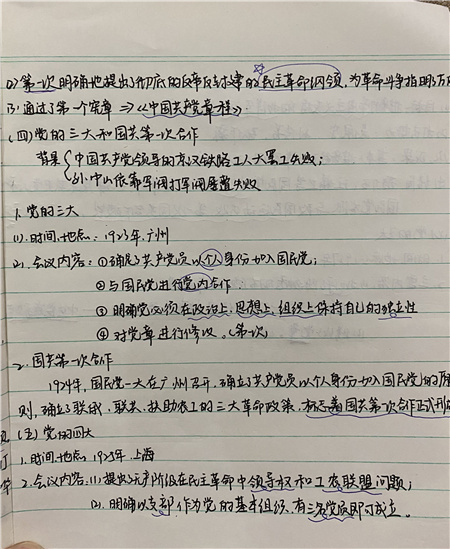 (2)第一次明确地提出了彻底的反帝反封建的民主革命纲领，为革命斗争指明了方
(3)通过了第一个党章⇒《中国共产党章程》
(四)党的三大和国共第一次合作
背景{中国共产党领导的京汉铁路工人大罢工失败；
孙中山依靠军阀打军阀屡屡失败
1.党的三大
(1).时间、地点：1923年.广州
(2).会议内容：①确定了共产党员以个人身份加入国民党；
②与国民党进行党内合作
③明确党必须在政治上、思想上、组织上保持自己的独立性
④对党章进行修改。(第一次)
2.国共第一次合作
1924年，国民党一大在广州召开，确立了共产党员以个人身份加入国民党的原
则，确立了联俄、联共、扶助农工的三大革命政策，标志着国共第一次合作正式形成
(五)党的四大
1.时间、地点：1925年.上海
2.会议内容：(1)提出了无产阶级在民主革命中领导权和工农联盟问题；
(2).明确以支部作为党的基本组织，有三名党员即可成立。